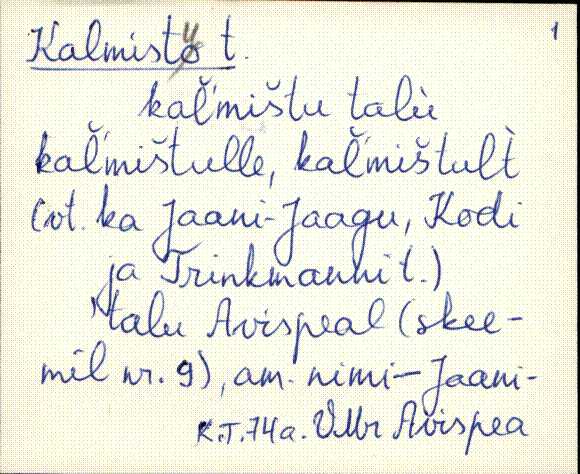 1
Kalmistu t.
kal̆'mištu talù
kal̆'mištulle, kal̆'mištult̀
(vt. ka Jaani-Jaagu, Kodi
ja Trinkmanni t.)
'talu Avispeal (skee-
mil nr. 9), am. nimi – Jaani-
K.T. 74a. VMr Avispea